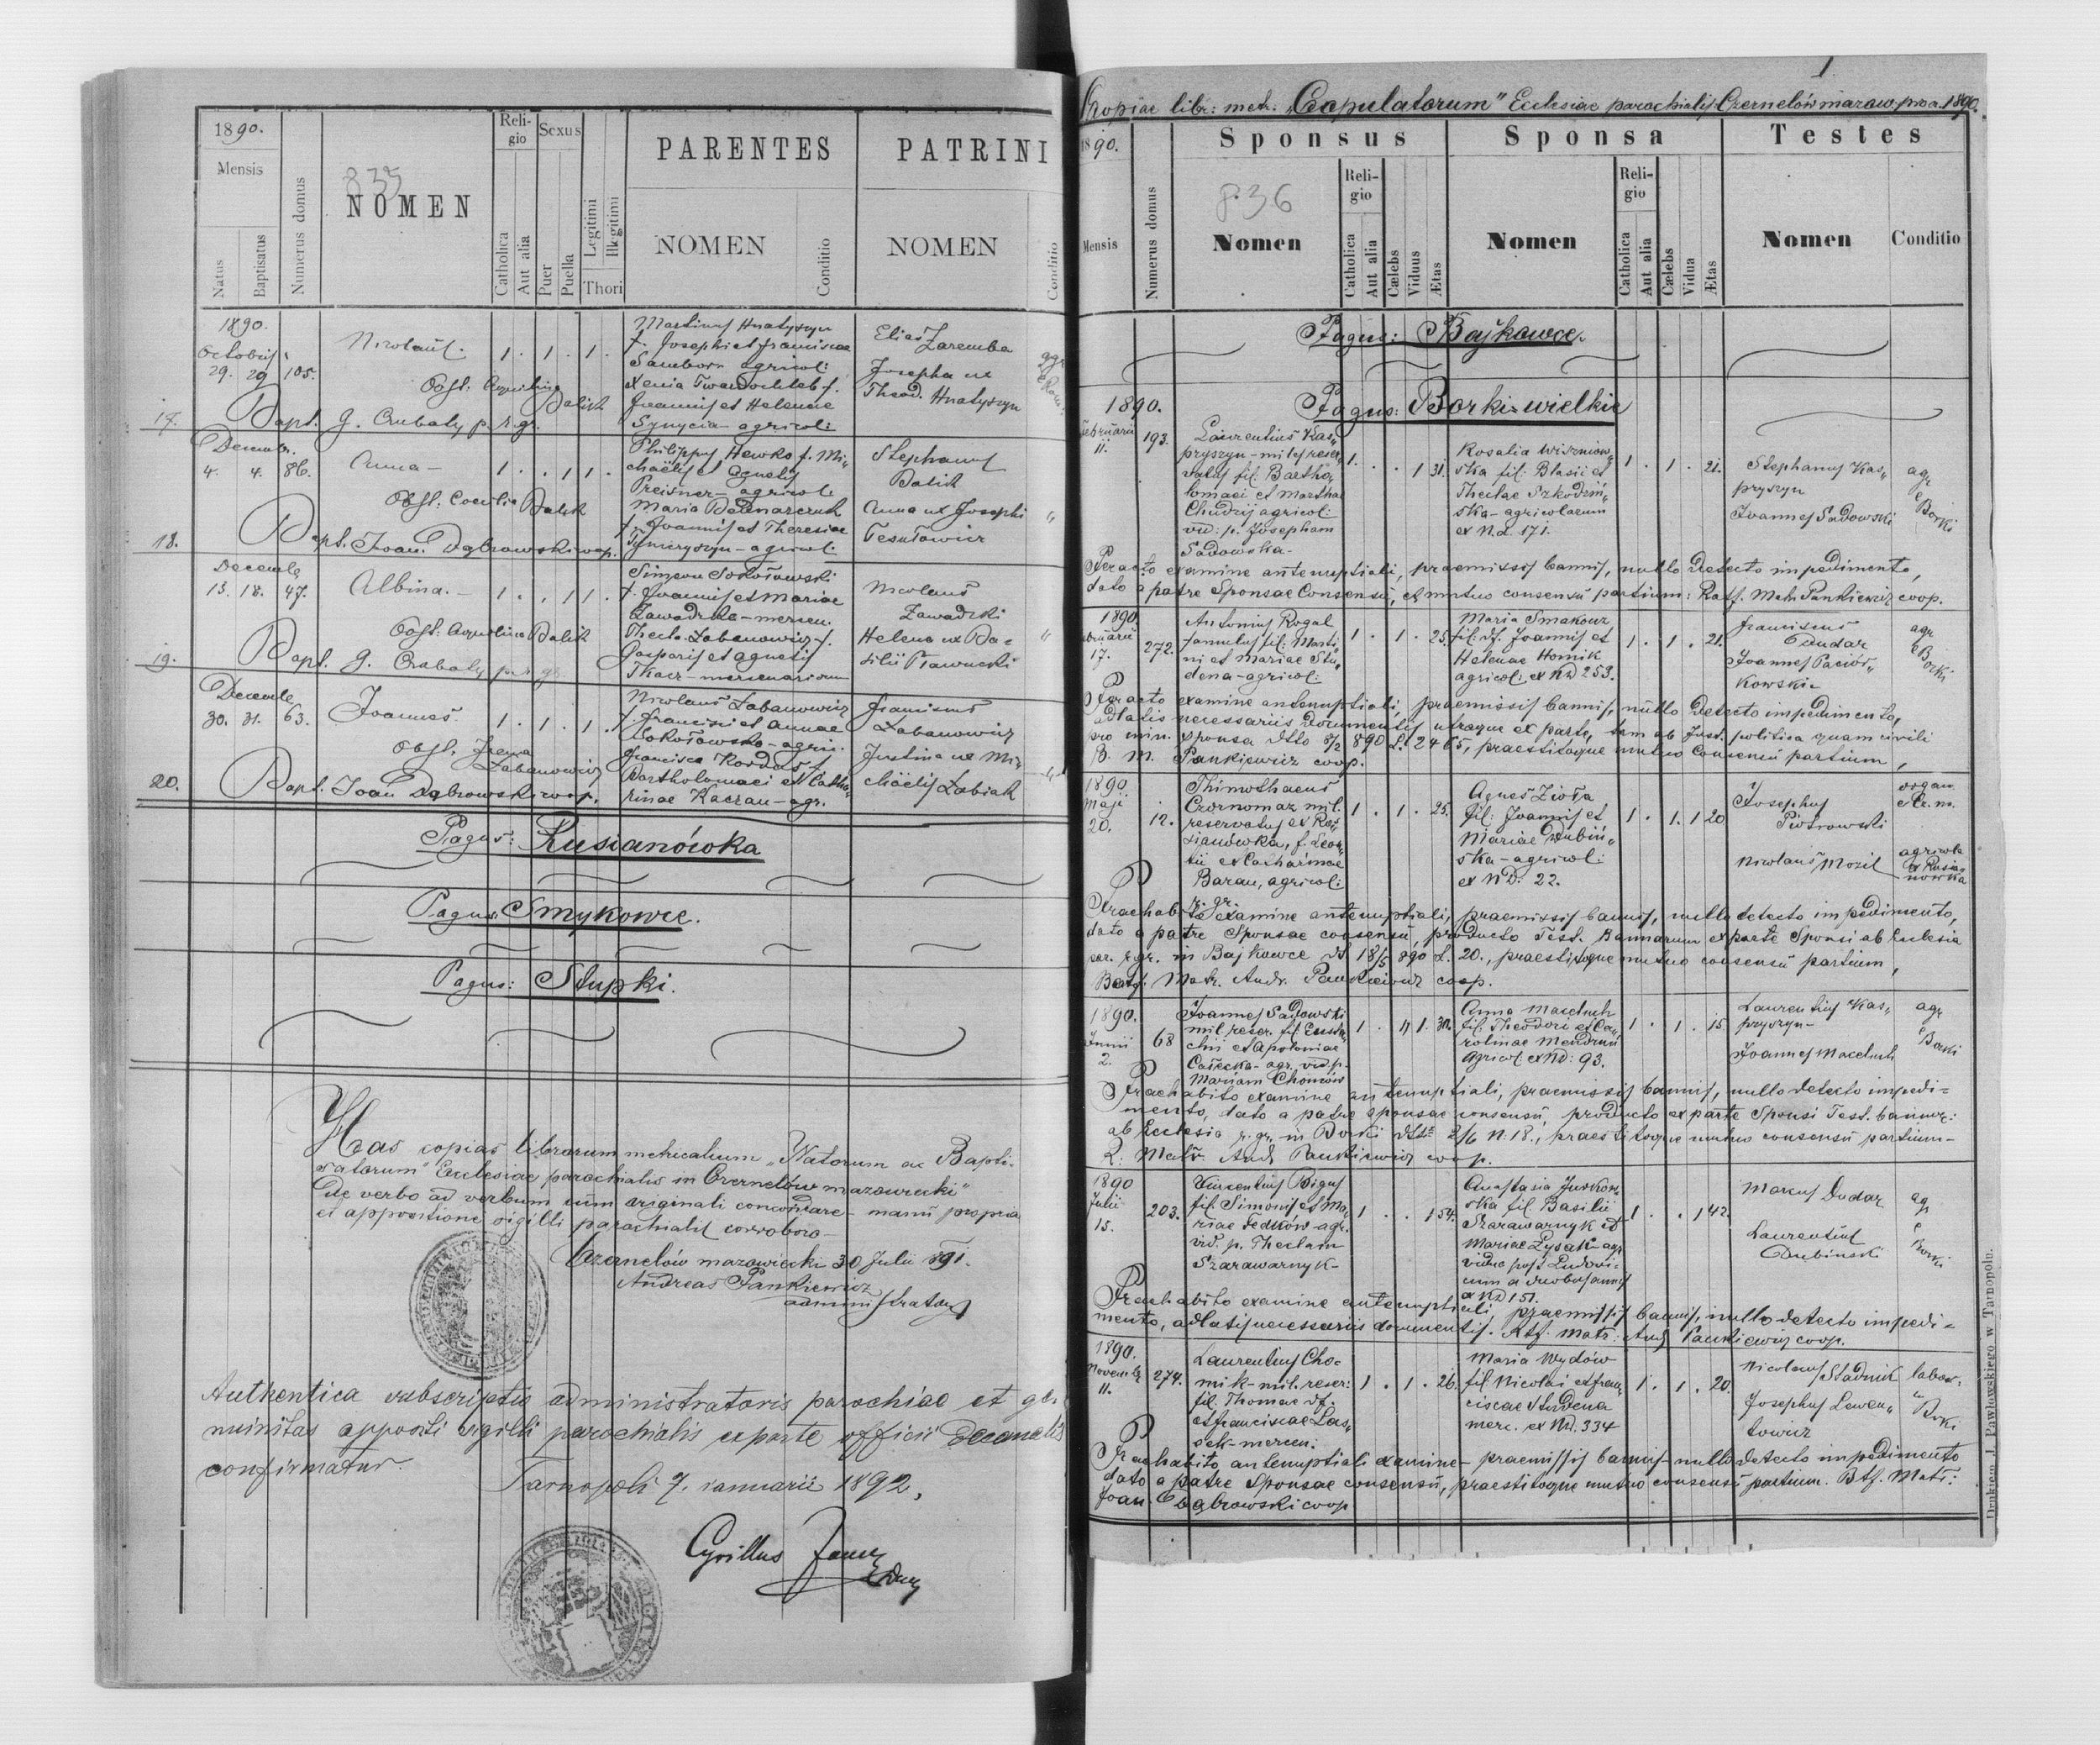 1890.
Mensis
Natus
Baptisatus
Numerus domus
835
NOMEN
Religio
Catholica
Aut alia
Sexus
Puer
Puella
Legitimi
Illegitimi
Thori
PARENTES
NOMEN
Conditio
PATRINI
NOMEN
Conditio
1890.
Octobris
29. 29 105.
Nicolaus.
1. 1. 1.
Martinus Hnatyszyn
f. Josephi et Franciscae
Sambor agricol:
Xenia Twardochleb f.
Joannis et Helenae
Synycia agricol:
Elias Zaremba
Josepha ux
Theod. Hnatyszyn
Obst. Aquilina Balich
17. Bapt. G. Czubaty p. r. gr.
Decembr.
4. 4. 86.
Anna
1. . 1 1.
Philippus Hewko f. Mi„
chaëlis et Agnetis
Preisner agricol.
Maria
f. Joannis et Theresiae
agricol.
Stephanus
Balich
Anna ux Josephi
Obst: Coecilia Balich
18. Bapt. Joan. Dąbrowski coop.
Decembr
15. 18. 47.
Albina.
1. . 1 1.
Simeon Sokołowski
f. Joannis et Mariae
Zawadzka mercen.
Thecla Łabanowicz f.
Gasparis et Agnetis
Tkacz mercenariorum
Nicolaus
Zawadzki
Helena ux Ba=
silii
Obst: Aquilina Balich
19. Bapt. G. Czubaty p. r. gr.
Decembr
30. 31. 63.
Joannes.
1. 1. 1.
Nicolaus Łabanowicz
f. Francisci et Annae
Sokołowska agric.
Francisca Kordas f.
Bartholomaei et Catha„
rinae Kaczan agr.
Franciscus
Łabanowicz
Justina ux Mi„
chaëlis Łabiak
Obst. Łabanowicz
20. Bapt. Joan Dąbrowski coop.
Pagus: Rusianówka
Pagus: Smykowce.
Pagus: Stupki.
Has copias librorum metricalium „Natorum ac Bapti-
satorum" Ecclesiae parochialis in Czernelów mazowiecki"
de verbo ad verbum cum originali concordare manu propria
et appositione sigilli parochialis corroboro
Czernelów mazowiecki 30 Julii 891.
Andreas Pankiewicz
administrator
Authentica subscriptio administratoris parochiae et ge-
nuinitas appositi sigilli parochialis ex parte officii decanalis
confirmatur.
Tarnopoli 7. januarii 1892,
Cyrillus
1
Copiae libr: metr. „Copulatorum" Ecclesiae parochialis: Czernelów mazow. pro a. 1890.
1890.
Mensis
Numerus domus
Sponsus
836
Nomen
Religio
Catholica
Aut alia
Cælebs
Viduus
Ætas
Sponsa
Nomen
Religio
Catholica
Aut alia
Cælebs
Vidua
Ætas
Testes
Nomen
Conditio
Pagus: Bajkowce.
1890. Pagus: Borki wielkie
Februarii
11. 193.
Laurentius Kas„
pryszyn miles reser„
vatus fil: Bartho„
lomaei et Marthae
Chudzij agricol:
vid: p. Josepham
Sadowska
1. . . 1 31.
Rosalia Wiszniow„
ska fil: Blasii et
Theclae Szkodziń„
ska agricolarum
ex N.d. 171.
1. . 1. 21.
Stephanus Kas„
pryszyn
Joannes Sadowski
agr e Borki
Peracto examine antenuptiali, praemissis bannis, nullo detecto impedimento,
dato a patre Sponsae Consensu, et mutuo consensu partium: Ratf. Matr. Pankiewicz coop.
1890
Februarii
17. 272.
Antonius Rogal
famulus fil. Marti„
ni et Mariae Stu„
dena agricol:
1. 1. 25.
Maria Smakouz
fil: df. Joannis et
Helenae Homik
agricol: ex Nd 253.
1. 1. 21.
Franciscus
Dudar
Joannes Paciór„
kowski
agr e Borki
Peracto examine antenuptiali, praemissis bannis, nullo detecto impedimento,
adlatis necessariis documentis utraque ex parte, tam ab Inst. politica quam civili
pro min. sponsa dtto 8/2 890 L: 2465, praestitoque mutuo Consensu partium,
B. M. Pankiewicz coop.
1890
Maji
20. 12.
Thimotheus
Czornomaz mil.
reservatus ex Ru„
sianówka, f. Leon„
tii et Catharinae
Baran, agricol:
r. gr.
1. 1. 25.
Agnes Zioła
fil: Joannis et
Mariae Dubiń„
ska agricol:
ex ND. 22.
1. 1. 1 20
Josephus
Piotrowski
organ.
Cz. m.
Nicolaus Mozil
agricola
ex Rusia„
nowka
Prachabito examine antenuptiali, praemissis bannis, nullo detecto impedimento,
dato a patre Sponsae consensu, producto Test. Bannorum ex parte Sponsi ab Ecclesia
par. r. gr. in Bajkowce dd 18/5 890 L. 20., praestitoque mutuo consensu partium,
Matr. Andr. Pankiewicz coop.
1890.
Junii
2. 68
Joannes Sadowski
mil. reser. fil. Eusta„
chii et Apoloniae
agr. vid. p.
Mariam Chomów
Anna Maceluch
fil. Theodori et Ca„
rolinae
agricol ex Nd: 93.
1. 1. 15.
Laurentius Kas„
pryszyn
Joannes Maceluch
agr e Borki
Prachabito examine antenuptiali, praemissis bannis, nullo detecto impedi=
mento, dato a patre sponsae consensu, producto ex parte Sponsi Test. bannor:
ab Ecclesia r. gr. in Borki dtto 2/6 N. 18., praestitoque mutuo consensu partium
Matr. Andr Pankiewicz coop.
1890
Julii
15. 203.
Vincentius Bigus
fil. Simonis et Ma„
riae Fedków agr.
vid. p. Theclam
Szarawarnyk
1. . . 1 54.
Anastasia Jurkow„
ska fil Basilii
Szarawarnyk et
Mariae Łysak agr
vidua post Ludovi-
cum a duobus annis
ex ND 151.
1. . 1 42.
Marcus Dudar
Laurentius
Dubinski
agr e Borki
Prachabito examine antenuptiali praemissis bannis, nullo detecto impedi=
mento, adlatis necessariis documentis. Rtf. Matr: Andr Pankiewicz coop.
1890.
Novembr
11. 274.
Laurentius Cho=
mik mil. reser:
fil. Thomae df.
et Franciscae Las„
mercen:
1. 1. 26.
Maria Wydów
fil Nicolai et Fran„
ciscae Studena
merc. ex Nd. 334
1. 1. 20.
Nicolaus Stadnik
Josephus Lewen„
towicz
labor.
Borki
Prachabito antenuptiali examine praemissis bannis nullo detecto impedimento
dato a patre Sponsae consensu, praestitoque mutuo consensu partium. Btf. Matr:
Joan. Dąbrowski coop
Drukiem J. Pawłowskiego w Tarnopolu.